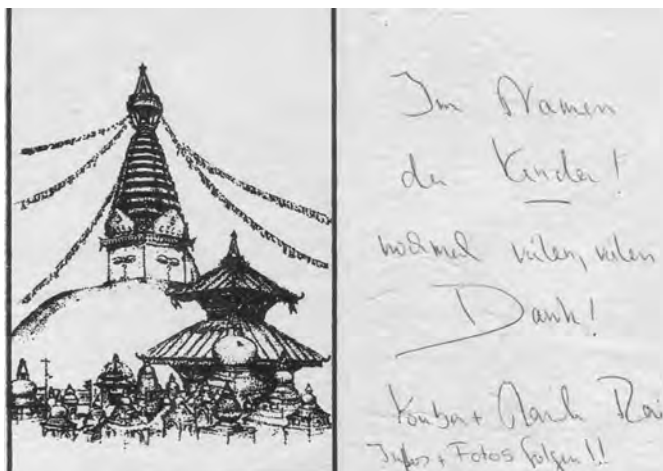 Im Namen
der Kinder!
nochmal vielen, vielen
Dank!
+ Rai
Infos + Fotos folgen!!